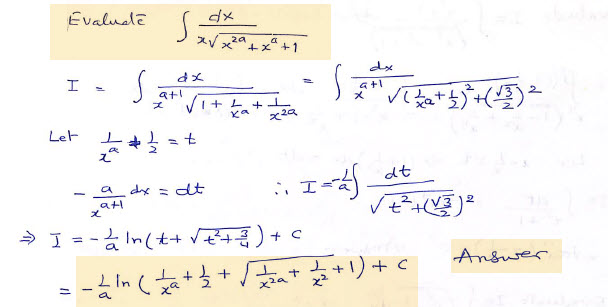 Evaluate ∫ dx / x√(x^2a + x^a + 1)
I = ∫ dx / x^(a+1) √(1 + 1/x^a + 1/x^2a) = ∫ dx / x^(a+1) √((1/x^a + 1/2)^2 + (√3/2)^2)
Let 1/x^a + 1/2 = t
- a/x^(a+1) dx = dt ∴ I = -1/a ∫ dt / √(t^2 + (√3/2)^2)
⇒ I = -1/a ln(t + √(t^2 + 3/4)) + c
= -1/a ln(1/x^a + 1/2 + √(1/x^2a + 1/x^2 + 1)) + c Answer